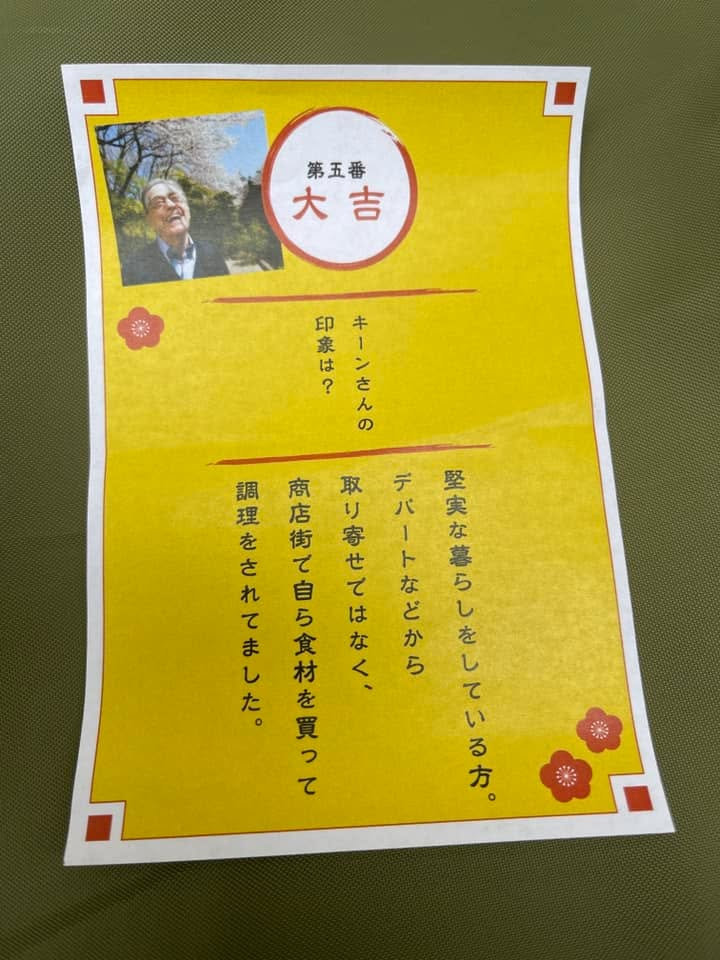 第五番
大吉
キーンさんの
印象は？
堅実な暮らしをしている方。
デパートなどから
取り寄せではなく、
商店街で自ら食材を買って
調理をされてました。